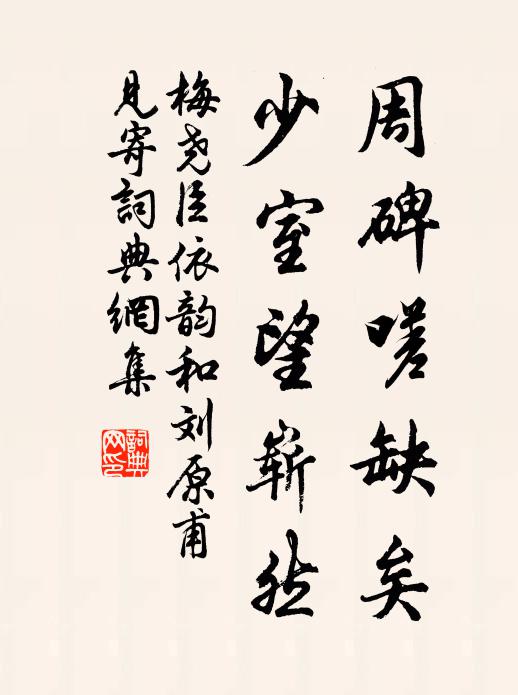 周碑嗟缺矣
少室望嶄然
梅尧臣依韵和刘原甫
見寄詞典網集
詞典
网印